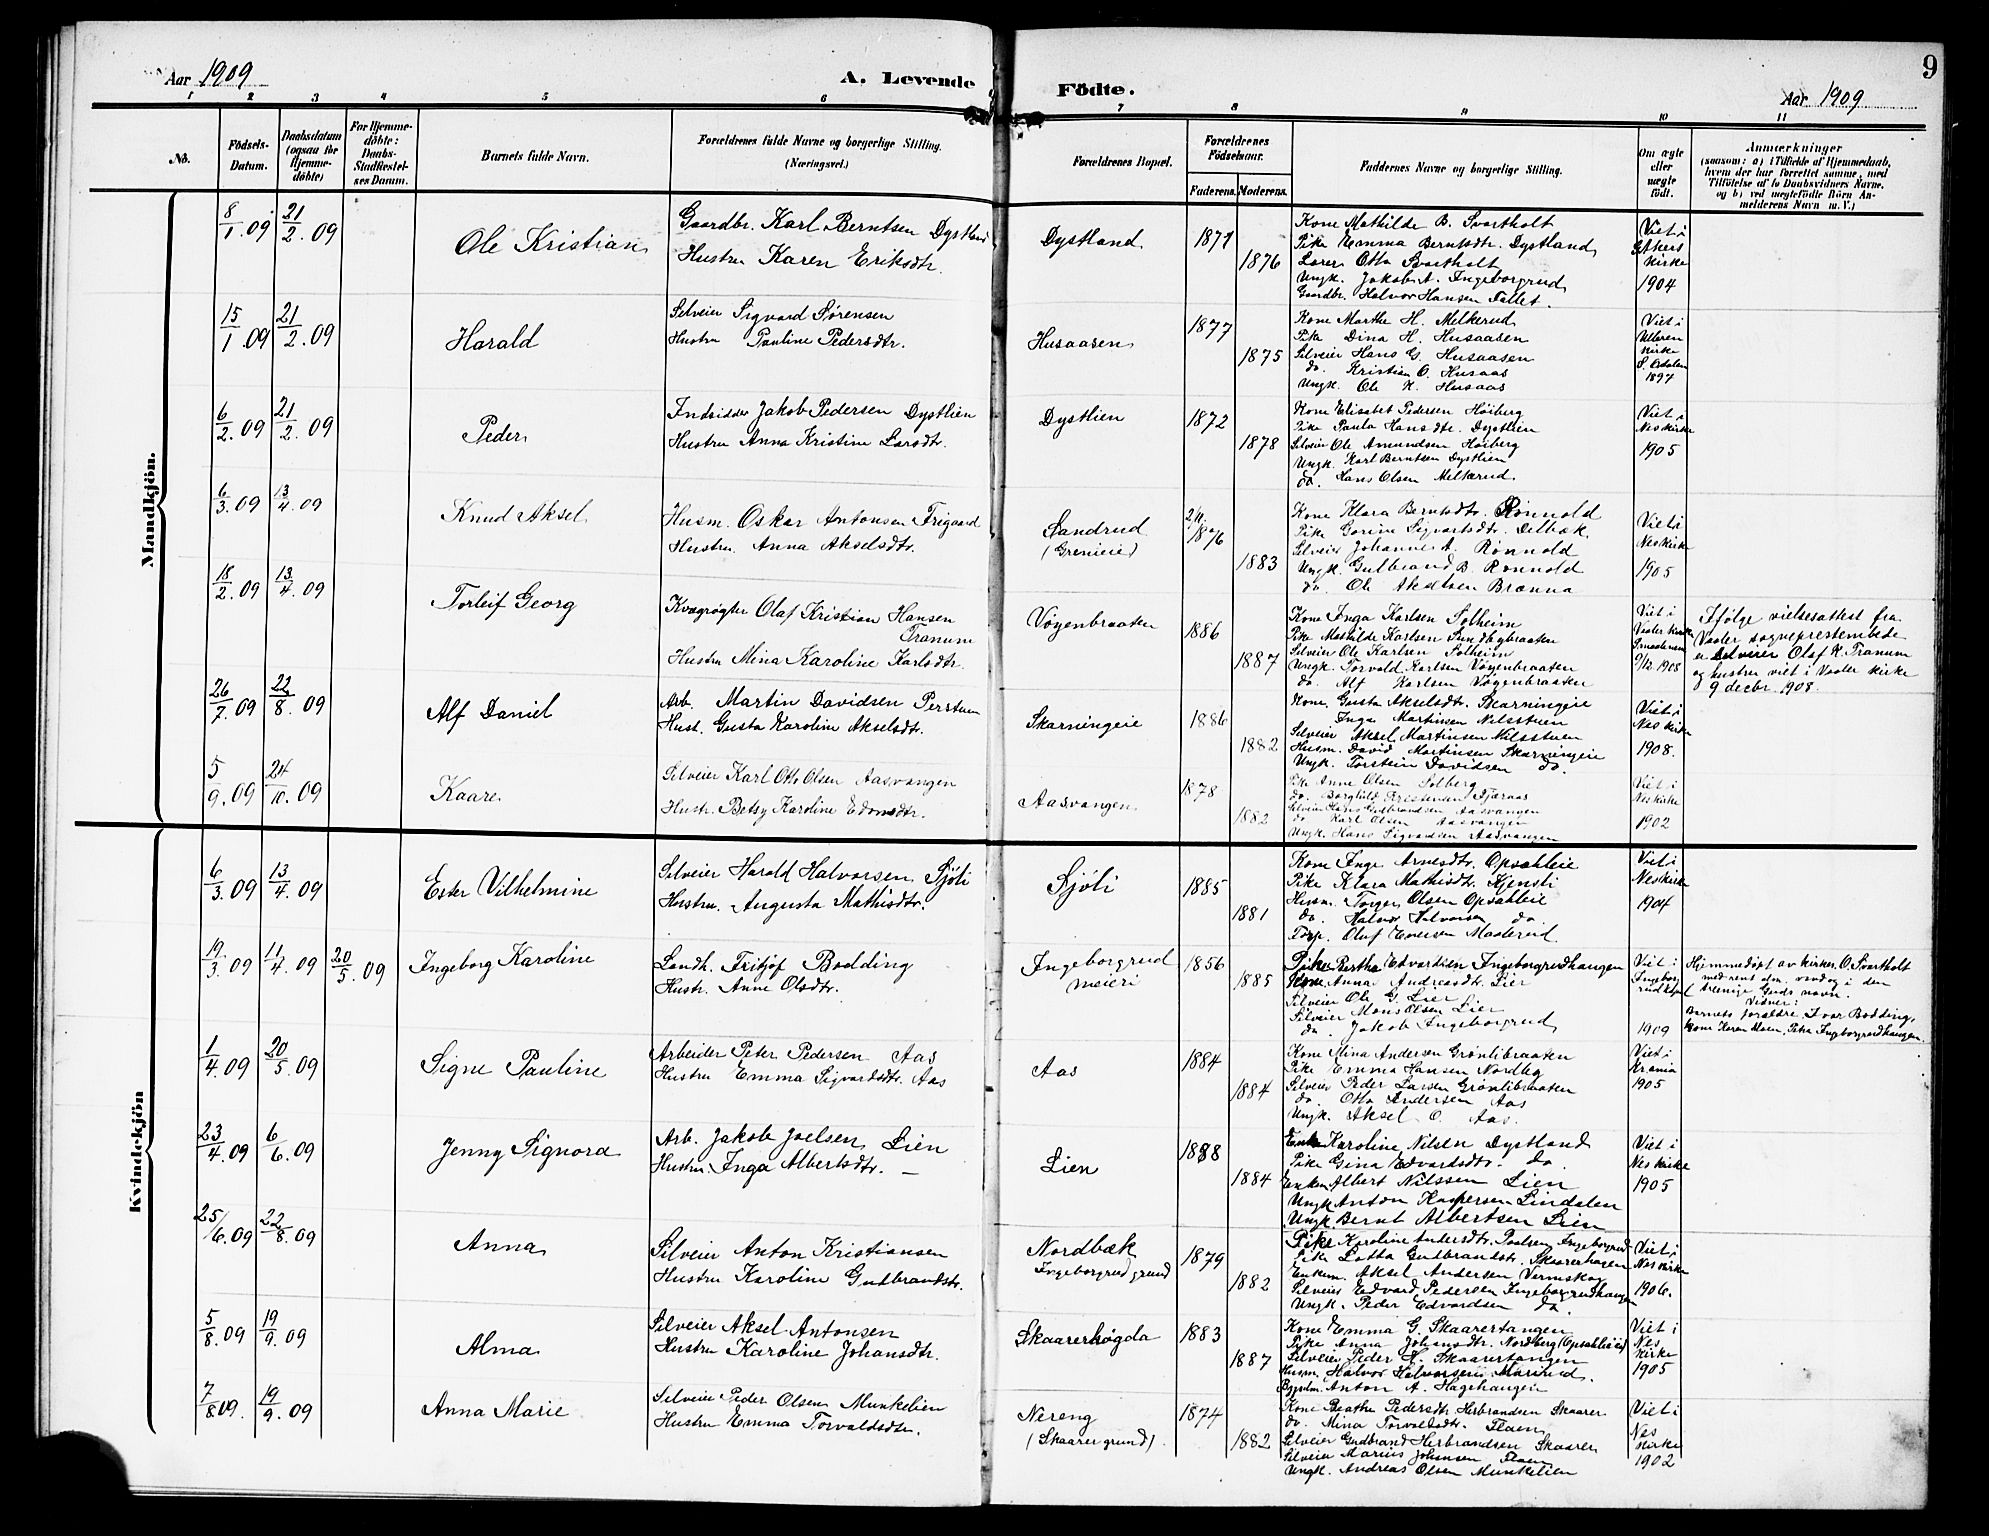 Aar 1909
A. Levende
Födte.
Aar 1909
9
1 2 3 4 5 6 7 8 9 10 11
No.
Födsels-Datum.
Daabsdatum (ogsaa for Hjemme-döbte)
For Hjemme-döbte: Daabs-Stadfæstel-ses Datum.
Barnets fulde Navn.
Forældrenes fulde Navne og borgerlige Stilling. (Næringsvei.)
Forældrenes Bopæl.
Forældrenes Födselsaar.
Faderens.
Moderens.
Faddernes Navne og borgerlige Stilling.
Om ægte eller uægte födt.
Anmærkninger
(saasom: a) i Tilfælde af Hjemmedaab, hvem der har forrettet samme, med Tilföielse af to Daabsvidners Navne, og b) ved uægtefödte Börn Anmelderens Navn m. V.)
Mandkjön.
8/1.09 21/2.09
Ole Kristian
Gaardbr. Karl Berntsen Dystland
Hustru Karen Eriksdtr.
Dystland
1871
1876
Kone Mathilde B. Svartholt
Pike Emma Berntsdtr. Dystland
Lærer Otto Svartholt
Ungk. Jakob A. Ingeborgrud
Gaardbr. Halvor Hansen Fallet.
Viet i
kirke
1904
15/1.09 21/2.09
Harald
Selveier Sigvard Sørensen
Hustru Pauline Pedersdtr.
Husaasen
1877
1875
Kone Marthe H. Melkerud
Pike Dina H. Husaasen
Selveier Hans G. Husaasen
do. Kristian O. Husaas
Ungk. Ole K. Husaas
Viet i
Ulleren
kirke
S. Odalen
1897
6/2.09 21/2.09
Peder
Indsidder Jakob Pedersen Dystlien
Hustru Anna Kristine Larsdtr.
Dystlien
1872
1878
Kone Elisabet Pedersen Høiberg
Pike Paula Hansdtr. Dystlien
Selveier Ole Amundsen Høiberg
Ungk. Karl Berntsen Dystlien
do. Hans Olsen Melkerud.
Viet i
Nes kirke
1905
6/3.09 13/4.09
Knud Aksel
Husm. Oskar Antonsen Frigaard
Hustru. Anna Akselsdtr.
Sandrud
(Greneie)
2/11. 1876
1883
Kone Klara Berntsdtr. Rønnold
Pike Gorine Sigvartsdtr. Delbak
Selveier Johannes A. Rønnold
Ungk. Gulbrand B. Rønnold
do. Ole Akseltsen Brænna
Viet i
Nes kirke
1905
18/2.09 13/4.09
Torleif Georg
Kvægrøgter Olaf Kristian Hansen
Tranum
Hustru Mina Karoline Karlsdtr.
Vøyenbraaten
1886
1887
Kone Inga Karlsen Solheim
Pike Mathilde Karlsen Sundbybraaten
Selveier Ole Karlsen Solheim
Ungk. Torvald Karlsen Vøyenbraaten
do. Alf Karlsen Vøyenbraaten
Viet i
Vaaler kirke
Smaalenene
9/12 1908
Ifølge vielsesattest fra
Vaaler sogneprestembede
er Selveier Olaf K. Tranum
og hustru viet i Vaaler kirke
9 decbr. 1908.
26/7.09 22/8.09
Alf Daniel
Arb. Martin Davidsen Perstuen
Hust. Gusta Karoline Akselsdtr.
Skarningeie
1886
1882
Kone Gusta Akselsdtr. Skarningeie
Inga Martinsen Nilsstuen
Selveier Aksel Martinsen Nilsstuen
Husm. David Martinsen Skarningeie
Ungk. Torstein Davidsen do.
Viet i
Nes kirke
1908.
5/9.09 24/10.09
Kaare
Selveier Karl Otto Olsen Aasvangen
Hustr. Betsy Karoline Edvardsdtr.
Aasvangen
1878
1882
Pike Anne Olsen Solberg
do. Borghild Kristensen Fjæraas
Selveier Hans Gulbrandsen Aasvangen
do Karl Olsen Aasvangen
Ungk. Hans Sigvardsen Aasvangen
Viet i
Nes kirke
1902
Kvindekjön
6/3.09 13/4.09
Ester Vilhelmine
Selveier Harald Halvorsen Sjöli
Hustru. Augusta Mathisdtr.
Sjöli
1885
1881
Kone Inga Arnesdtr. Opsahleie
Pike Klara Mathisdtr. Kjensli
Husm. Torger Olsen Opsahleie
do. Halvor Halvorsen do.
Torp. Olaf Evensen Maalerud.
Viet i
Nes kirke
1904
19/3.09 11/4.09 20/5.09
Ingeborg Karoline
Landh. Fritjof Bodding
Hustr. Anne Olsdtr.
Ingeborgrud
meieri
1856
1885
Pike Bertha Edvardsen Ingeborgrudhangen
Kone Anna Andreasdtr. Lier
Selveier Ole G. Lier
Selveier Mons Olsen Lier
do. Jakob Ingeborgrud
Viet i
Ingeborgrud
1909
Hjemmedøpt av kirkes. O. Svartholt
med rent den. vand og i den
treenige Guds navn.
Vidner:
Barnets forældre, Ivar Bodding,
Kone Karen Moen, Petra Ingeborgrudhangen.
1/4.09 20/5.09
Signe Pauline
Arbeider Peter Pedersen Aas
Hustru Emma Sigvardsdtr. Aas
Aas
1884
1884
Kone Mina Andersen Grønlibraaten
Pike Emma Hansen Nordby
Selveier Peder Larsen Grønlibraaten
do. Otto Andersen Aas
Ungk. Aksel O. Aas.
Viet i
Krania
1905
23/4.09 6/6.09
Jenny Signora
Arb. Jakob Joelsen Lien
Hustru. Inga Albertsdtr. —
Lien
1888
1884
Enke Karoline Nilsen Dystland
Pike Gina Edvardsdtr. do.
Enkem. Albert Nilssen Lien
Ungk Anton Kaspersen Lindalen
Ungk. Bernt Albertsen Lien
Viet i
Nes kirke
1905
25/6.09 22/8.09
Anna
Selveier Anton Kristiansen
Hustru Karoline Gudbrandsdtr.
Nordbæk
Ingeborgrudgrund
1879
1882
Pike Karoline Andersdtr. Paalsen Ingeborgrud
Pike Lotta Gudbrandsdtr. Skaarerhagen
Enkem. Aksel Andersen Vermskog
Selveier Edvard Pedersen Ingeborgrudhangen
Ungk. Peder Edvardsen do.
Viet i
Nes kirke
1906.
5/8.09 19/9.09
Alma
Selveier Aksel Antonsen
Hustru Karoline Johansdtr.
Skaarerhøgda
1883
1887
Kone Emma G. Skaarertangen
Pike Anna Johansdtr. Nordberg (Opsahleie)
Selveier Peder H. Skaarertangen
Husm. Halvor Halvorsens Marirud.
Anton A. Hagehaugen
Viet i
Nes
kirke
1905
7/8.09. 19/9.09
Anna Marie
Selveier Peder Olsen Munkelien
Hustru Emma Torvaldsdtr.
Nereng
(Skaarergrund).
1874
1882
Kone Beathe Pedersdtr Herbrandsen Skaarer
do. Mina Torvaldsdtr. Flaen
Selveier Gudbrand Herbrandsen Skaarer
Selveier Marius Johansen Flaen
Ungk. Andreas Olsen Munkelien
Viet i
Nes
kirke
1902